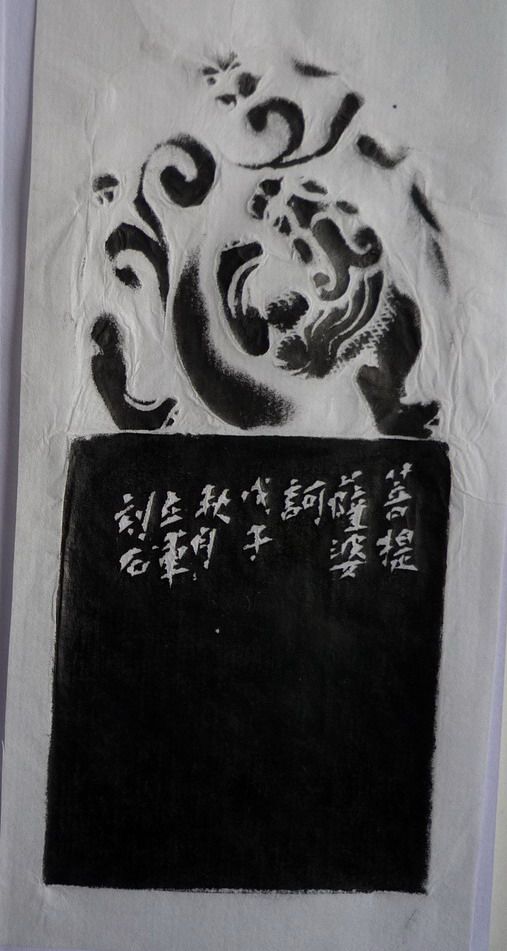 菩提
薩婆
訶
戊子
秋月
立軍
刻石